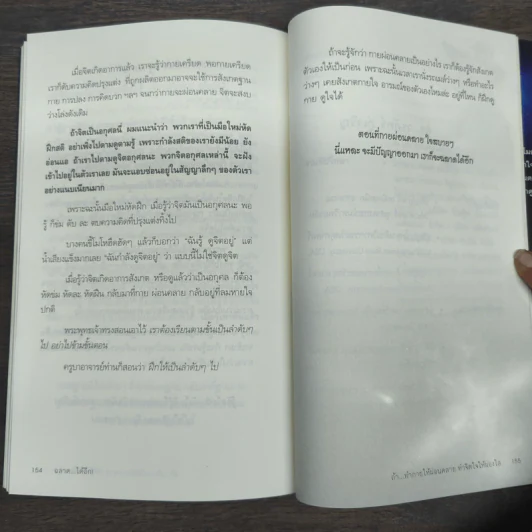 เมื่อจิตเกิดอาการแล้ว เราจะรู้ว่ากายเครียด พอกายเครียด
เราก็ดับความคิดปรุงแต่ง ที่ถูกผลิตออกมาอาจจะใช้การสังเกตฐาน
กาย การปลง การคิดบวก ฯลฯ จนกว่ากายจะผ่อนคลาย จิตจะสงบ
ว่างโล่งดังเดิม
ถ้าจิตเป็นอกุศลนี้ ผมแนะนำว่า พวกเราที่เป็นมือใหม่หัด
ฝึกสติ อย่าเพิ่งไปตามดูตามรู้ เพราะกำลังสติของเรายังมีน้อย ยัง
อ่อนแอ ถ้าเราไปตามดูจิตอกุศลนะ พวกจิตอกุศลเหล่านี้ จะฝัง
เข้าไปอยู่ในตัวเราเลย มันจะแอบซ่อนอยู่ในสัญญาลึกๆ ของตัวเรา
อย่างแนบเนียนมาก
เพราะฉะนั้นมือใหม่หัดฝึก เมื่อรู้ว่าจิตมันเป็นอกุศลนะ พอ
รู้ ก็ข่ม ดับ ละ ตบความคิดที่ปรุงแต่งทิ้งไป
บางคนขี้โมโหฮึดฮัดๆ แล้วก็บอกว่า "ฉันรู้ ดูจิตอยู่" แต่
น้ำเสียงแข็งมากเลย "ฉันกำลังดูจิตอยู่" ว่า แบบนี้ไม่ใช่จิตดูจิต
เมื่อรู้ว่าจิตเกิดอาการสังเกต หรือดูแล้วว่าเป็นอกุศล ก็ต้อง
หัดข่ม หัดละ หัดฝืน กลับมาที่กาย ผ่อนคลาย กลับอยู่ที่ลมหายใจ
ปกติ
พระพุทธเจ้าทรงสอนเอาไว้ เราต้องเรียนตามขั้นเป็นลำดับๆ
ไป อย่าไปข้ามขั้นตอน
ครูบาอาจารย์ท่านก็สอนว่า ฝึกให้เป็นลำดับๆ ไป
154 ฉลาด...ได้อีก!
ถ้าจะรู้จักว่า กายผ่อนคลายเป็นอย่างไร เราก็ต้องรู้จักสังเกต
ตัวเองให้เป็นก่อน เพราะฉะนั้นเวลาเรานั่งรถเมล์ว่างๆ หรือทำอะไร
ว่างๆ เคยสังเกตกายใจ อารมณ์ของตัวเองไหมล่ะ อยู่ที่ไหน ก็ฝึกดู
กาย ดูใจได้
ตอนที่กายผ่อนคลาย ใจสบายๆ
นี่แหละ จะมีปัญญาออกมา เราก็จะฉลาดได้อีก
ถ้า...ทำกายให้ผ่อนคลาย ทำจิตใจให้ผ่องใส 155